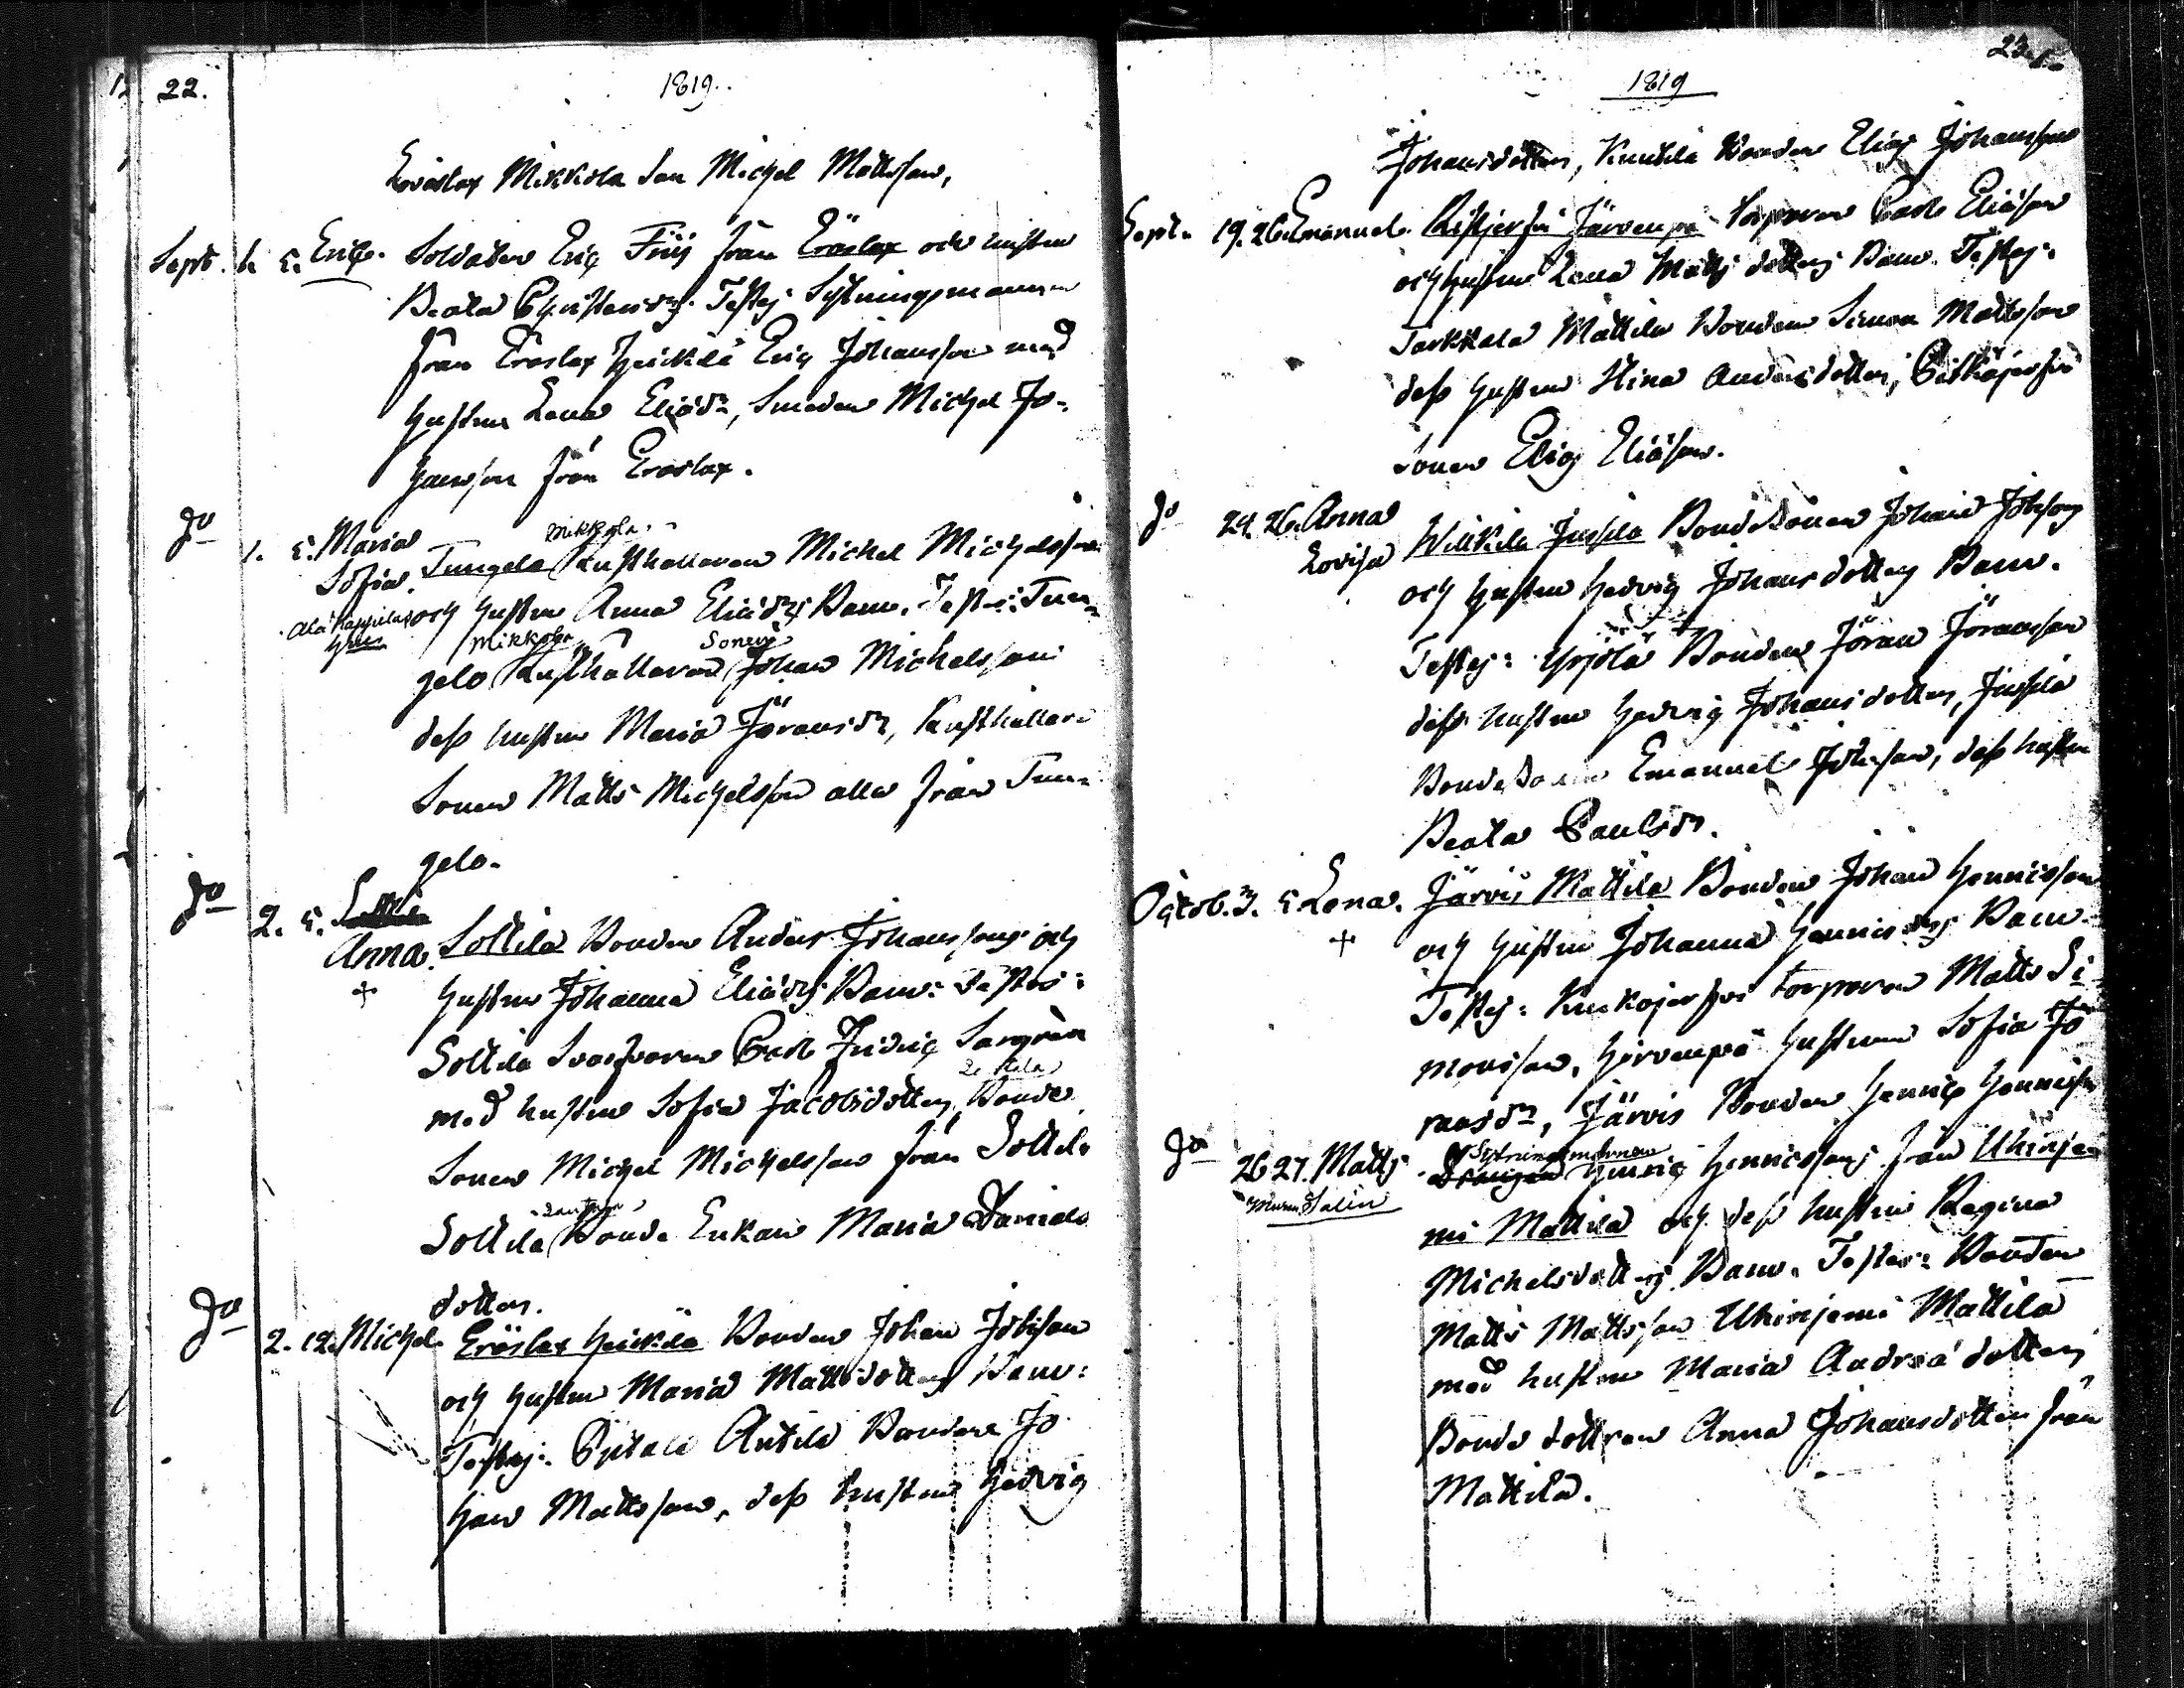 22.
1819.
Eräslax Mikkola Son Michel Mattsson,
Sept. 1. 5. Eric. Soldaten Eric Frij från Eräslax och hustru
Beata Christersdrs. Testes Sytningsmannen
från Eräslax Heickilä Eric Johansson med
hustru Lena Eliædr, Smeden Michel Jo-
hansson från Eräslax.
Do 1. 5. Maria Sofia. Tungelo Mikkola Rusthållaren Michel Michelssons
Ala Kappelus
och hustru Anna Eliædrs Barn. Testes: Tun-
gelo Mikkola Rusthållare Sonen Johan Michelsson
dess hustru Maria Jöransdr, Rusthållare
Sonen Matts Michelsson alla från Tun-
gelo.
Do 2. 5. Anna. Sottila Bonden Anders Johanssons och
hustru Johanna Eliædrs Barn: Testes:
Sottila Svarfvaren Carl Fridric
med hustru Sofia Jacobsdotter, Bonde
Sonen Michel Michelsson från Sottila
Sottila Bonde Enkan Maria Daniels
dotter.
Do 2. 12. Michel. Eräslax Heickilä Bonden Johan Jöbsson
och hustru Maria Mattsdotters Barn:
Testes: Anttila Bonden Jo
han Mattsson, dess hustru Hedvig
23.
1819
Johansdotter, Knutila Bonden Elias Johansson
Sept. 19. 26. Emanuel. Ristjerfvi Järvenpä Torparen Carl Eliæson
och hustru Lena Mattsdotters Barn. Testes:
Torkkala Mattila Bonden Simon Mattsson
dess hustru Stina Andersdotter, Pitkäjerfvi
Sonen Elias Eliæson.
Do 24. 26. Anna Lovisa Wilkila Jussila BondeSonen Johan Jöbssons
och hustru Hedvig Johansdotters Barn.
Testes: Yrjölä Bonden Jöran Jöransson
dess hustru Hedvig Johansdotter, Jussila
BondeSonen Emanuel Jöbsson, dess hustru
Beata Paulsdr.
Octob. 3. 5. Lena. Järvis Mattila Bonden Johan Henricsson
och hustru Johanna Henricsdrs Barn.
Testes: Kuckojerfvi Torparen Matts Si-
monsson, Hirvenpä hustrun Sofia Jö
ransdr, Järvis Bonden Henric Henricsson
Do 26 27. Matts Sytningsmannen Henric Henricssons från Uhinje
mi Mattila och dess hustru Regina
Michelsdotters Barn. Testes: Bonden
Matts Mattsson Uhinjemi Mattila
med hustru Maria Andreædotter
Bonde dottren Anna Johansdotter från
Mattila.